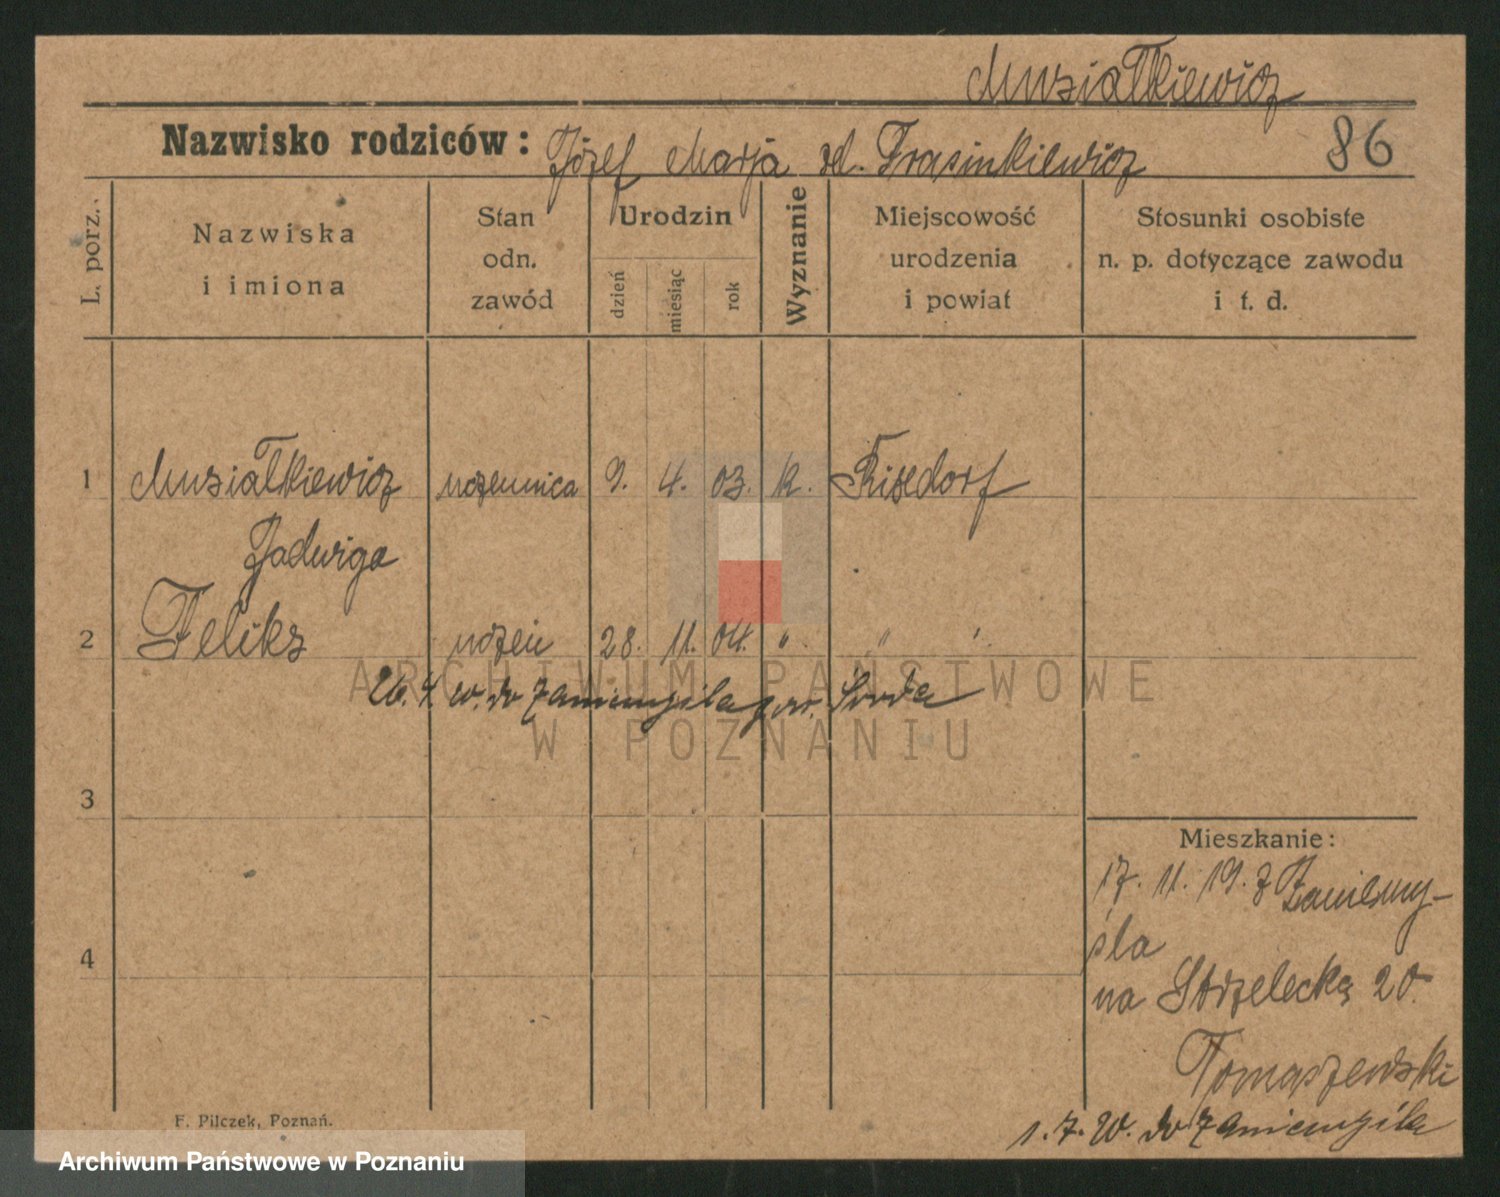 Musiałkiewicz
Nazwisko rodziców: Józef Marja zd. Frasinkiewicz
86
L. porz.
Nazwiska
i imiona
Stan
odn.
zawód
Urodzin
dzień
miesiąc
rok
Wyznanie
Miejscowość
urodzenia
i powiat
Stosunki osobiste
n. p. dotyczące zawodu
i t. d.
1 Musiałkiewicz uczennica 9. 4. 03. k. Risedorf
Jadwiga
2 Feliks uczeń 28. 11. 04. " " "
26. 4. w. do Zaniemyśla pow. Środa
ARCHIWUM PAŃSTWOWE
W POZNANIU
3
Mieszkanie:
17. 11. 19. z Zaniemy-
śla
4
na Strzelecką 20
Tomaszewski
1. 7. 20. do Zaniemyśla
F. Pilczek, Poznań.
Archiwum Państwowe w Poznaniu